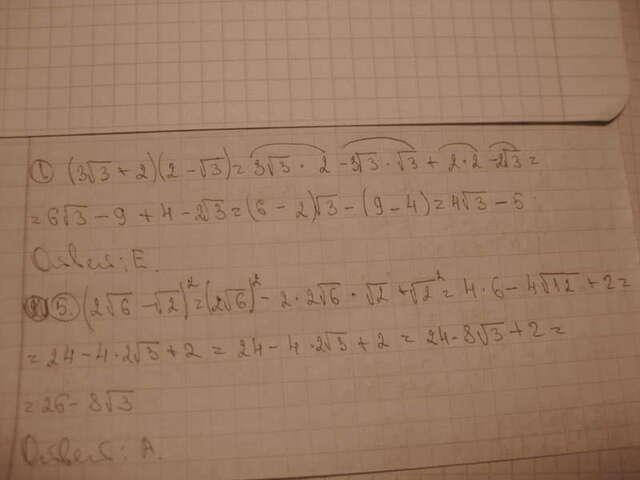 ① (3√3 + 2)(2 - √3) = 3√3 · 2 - 3√3 · √3 + 2 · 2 - 2√3 =
= 6√3 - 9 + 4 - 2√3 = (6 - 2)√3 - (9 - 4) = 4√3 - 5
Ответ: E.
⑤. (2√6 - √2)² = (2√6)² - 2 · 2√6 · √2 + √2² = 4 · 6 - 4√12 + 2 =
= 24 - 4 · 2√3 + 2 = 24 - 4 · 2√3 + 2 = 24 - 8√3 + 2 =
= 26 - 8√3
Ответ: А.